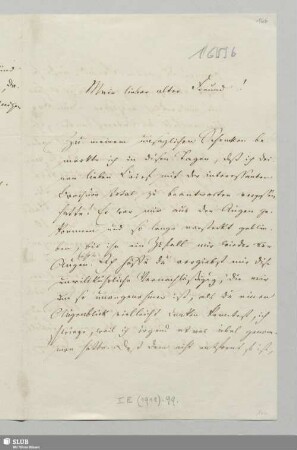 16596
Mein lieber alter Freund!
Zu meinem unsäglichen Schrecken be
merkte ich in diesen Tagen, daß ich dei
nen lieben Brief mit der interessanten
Broschüre total zu beantworten vergessen
hatte! Er war mir aus den Augen ge
kommen und so lange versteckt geblie
ben, bis ihn ein Zufall mir wieder vor
Augen führte. Ich hoffe du verzeihst mir diese
unwillkührliche Vernachlässigung, die mir
um so unangenehmer ist, als du einen
Augenblick vielleicht denken konntest, ich
schwiege, weil ich irgend etwas übel genom
men hätte. Daß dem nicht so ist,
I.E. (1908). 99.
SLUB
Wir führen Wissen.